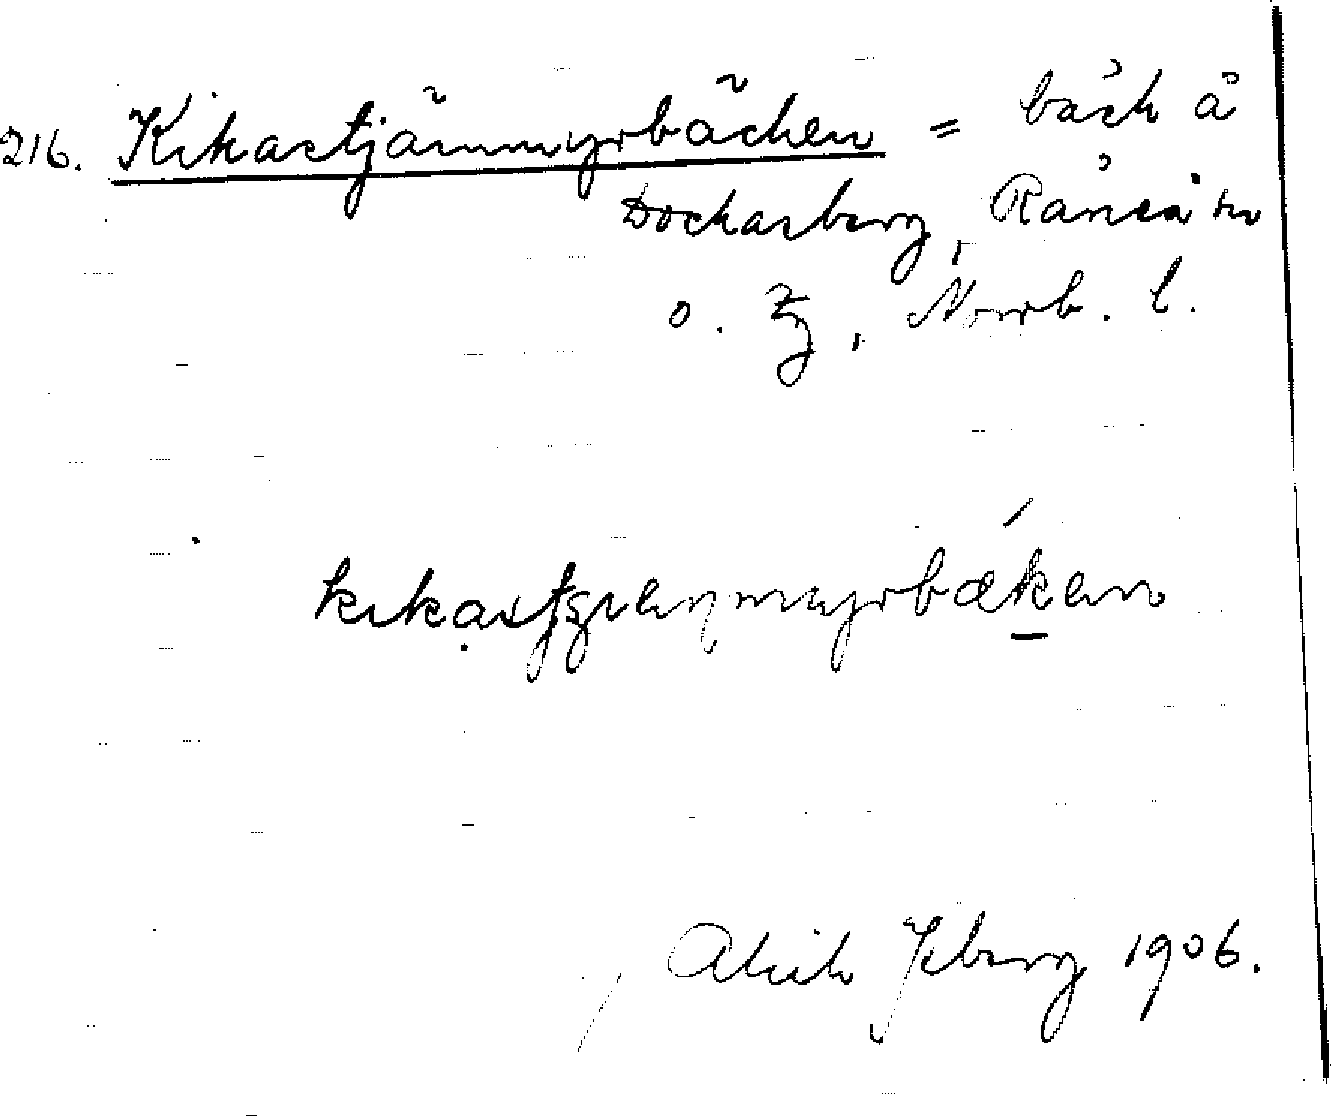 216. Kikastjärnmyrbäcken = bäck å
Dockasberg, Råneå sn
o. tg, Norrb. l.
kikastjɛnmyrbæken
Alvik Isberg 1906.